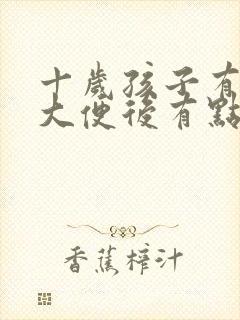 十歲孩子有
大便後有點
香蕉檸汁